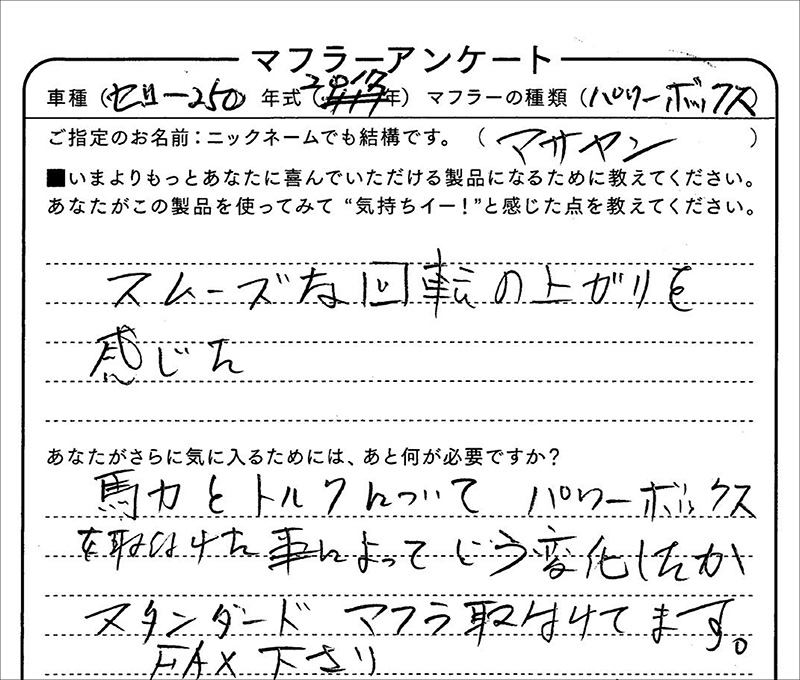 マフラーアンケート
車種（セロー250 年式（2017年）マフラーの種類（パワーボックス
ご指定のお名前：ニックネームでも結構です。（マサヤン）
■いまよりもっとあなたに喜んでいただける製品になるために教えてください。
あなたがこの製品を使ってみて“気持ちイー！”と感じた点を教えてください。
スムーズな回転の上がりを
感じた
あなたがさらに気に入るためには、あと何が必要ですか？
馬力とトルクについて パワーボックス
を取付けた事によってどう変化したか
スタンダード マフラ取付けてます。
FAX下さり